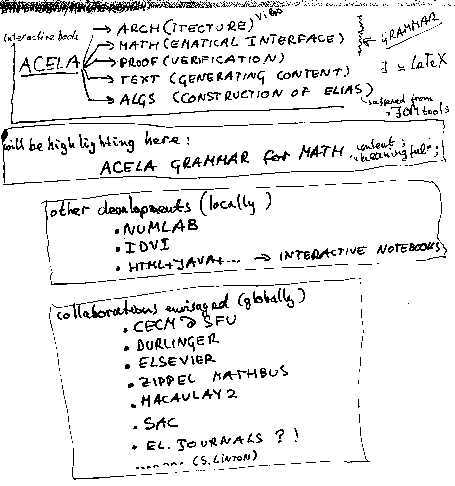 interactive books
ACELA
→ ARCH(ITECTURE) VIBO
→ MATH(EMATICAL INTERFACE)
→ PROOF(VERIFICATION)
→ TEXT (GENERATING CONTENT)
→ ALGS (CONSTRUCTION OF ELIAS)
← GRAMMAR
LaTeX
from
JDM tools
will be highlighting here:
ACELA GRAMMAR for MATH "content";
"meaningful";
other developments (locally)
• NUMLAB
• IDVI
• HTML+JAVA+... → INTERACTIVE NOTEBOOKS
collaborations envisaged (globally)
• CECM @ SFU
• DURLINGER
• ELSEVIER
• ZIPPEL MATHBUS
• MACAULAY2
• SAC
• EL. JOURNALS ?!
....... (S. LINTON)